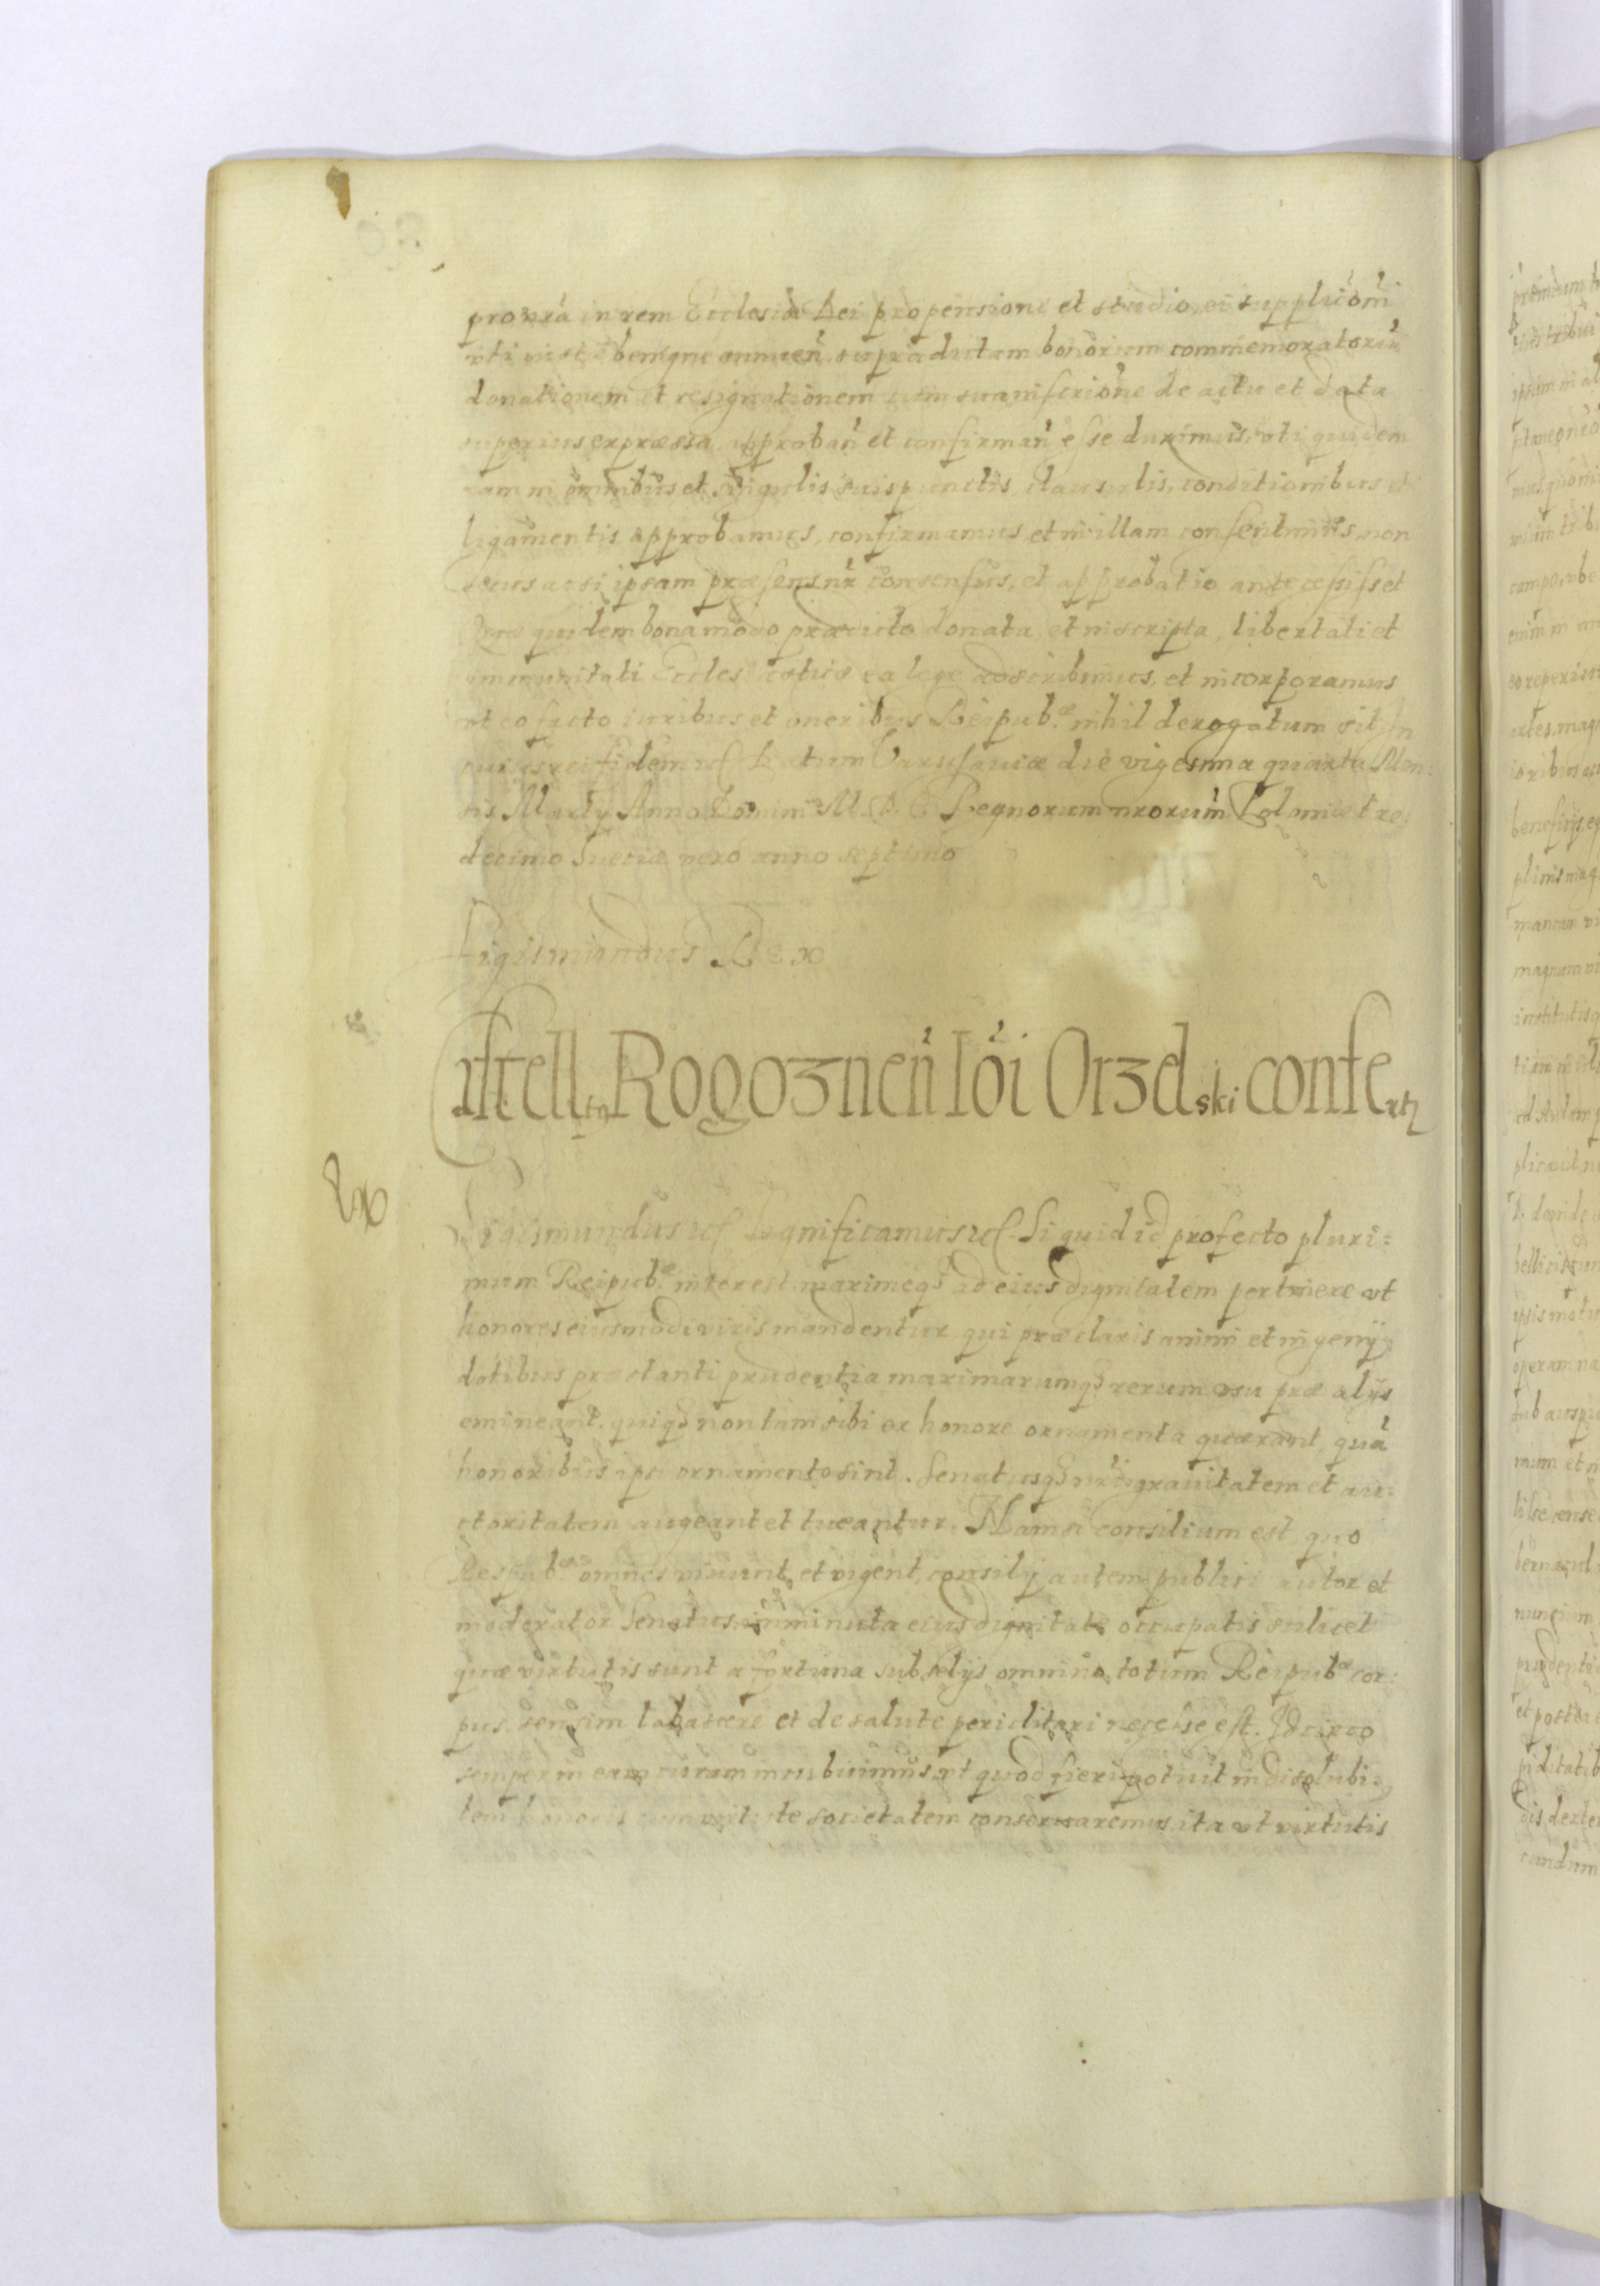 pro nrã in rem Ecclesiæ Dei propensione et studio, ei supplicõni
uti iustæ benigne annuen̄ supradictam bonorum commemoratorum̃
donationem et resignationem cum sua inscriptione de actu et data
superius expressa approban̄ et confirman̄ esse duximus, uti quidem
eam in omnibus et singulis suis punctis, clausulis, conditionibus et
ligamentis approbamus, confirmamus, et in illam consentimus, non
secus ac si ipsam præsens nr̃ consensus, et approbatio antecessisset
Quæ quidem bona modo prædicto donata, et inscripta, libertati et
immunitati Eccles ea lege adscribimus, et incorporamus
ut eo facto iuribus et oneribus Reipub.æ nihil derogatum sit In
cuius rei fidem Datum Varssaviæ die vigesima quarta Men:
sis Martij Anno Domini M.D.C Regnorum nrorum Poloniæ tre
decimo Sueciæ vero anno septimo
Sigismundus Rex
Castell tũ Rogoznen̄ Iõi Orzelski confertr
Sigismundus Significamus Si quid id profecto pluri:
mum Reipub.æ interest maximeq3 ad eius dignitatem pertinere ut
honores eiusmodi viris mandentur qui præclaris animi et ingenij
dotibus præstanti prudentia maximarumq3 rerum usu præ alijs
emineant. quiq3 non tam sibi ex honore ornamenta quærant, quã
honoribus ipsi ornamento sint. Senatusq3 nri gravitatem et au:
ctoritatem augeant et tueantur. Nam si consilium est quo
Respub.æ omnes vivunt et vigent, consilij autem publici autor et
moderator Senatus imminuta eius dignitate occupatis scilicet
quæ virtutis sunt a fortuna subselijs omnino totum Reipub.æ cor:
pus sensim labascere et de salute periclitari necesse est. Idcirco
semper in eam curam incubuimus ut quod fieri potuit indisolubi:
lem honoris cum virtute societatem conservaremus, ita ut virtutis